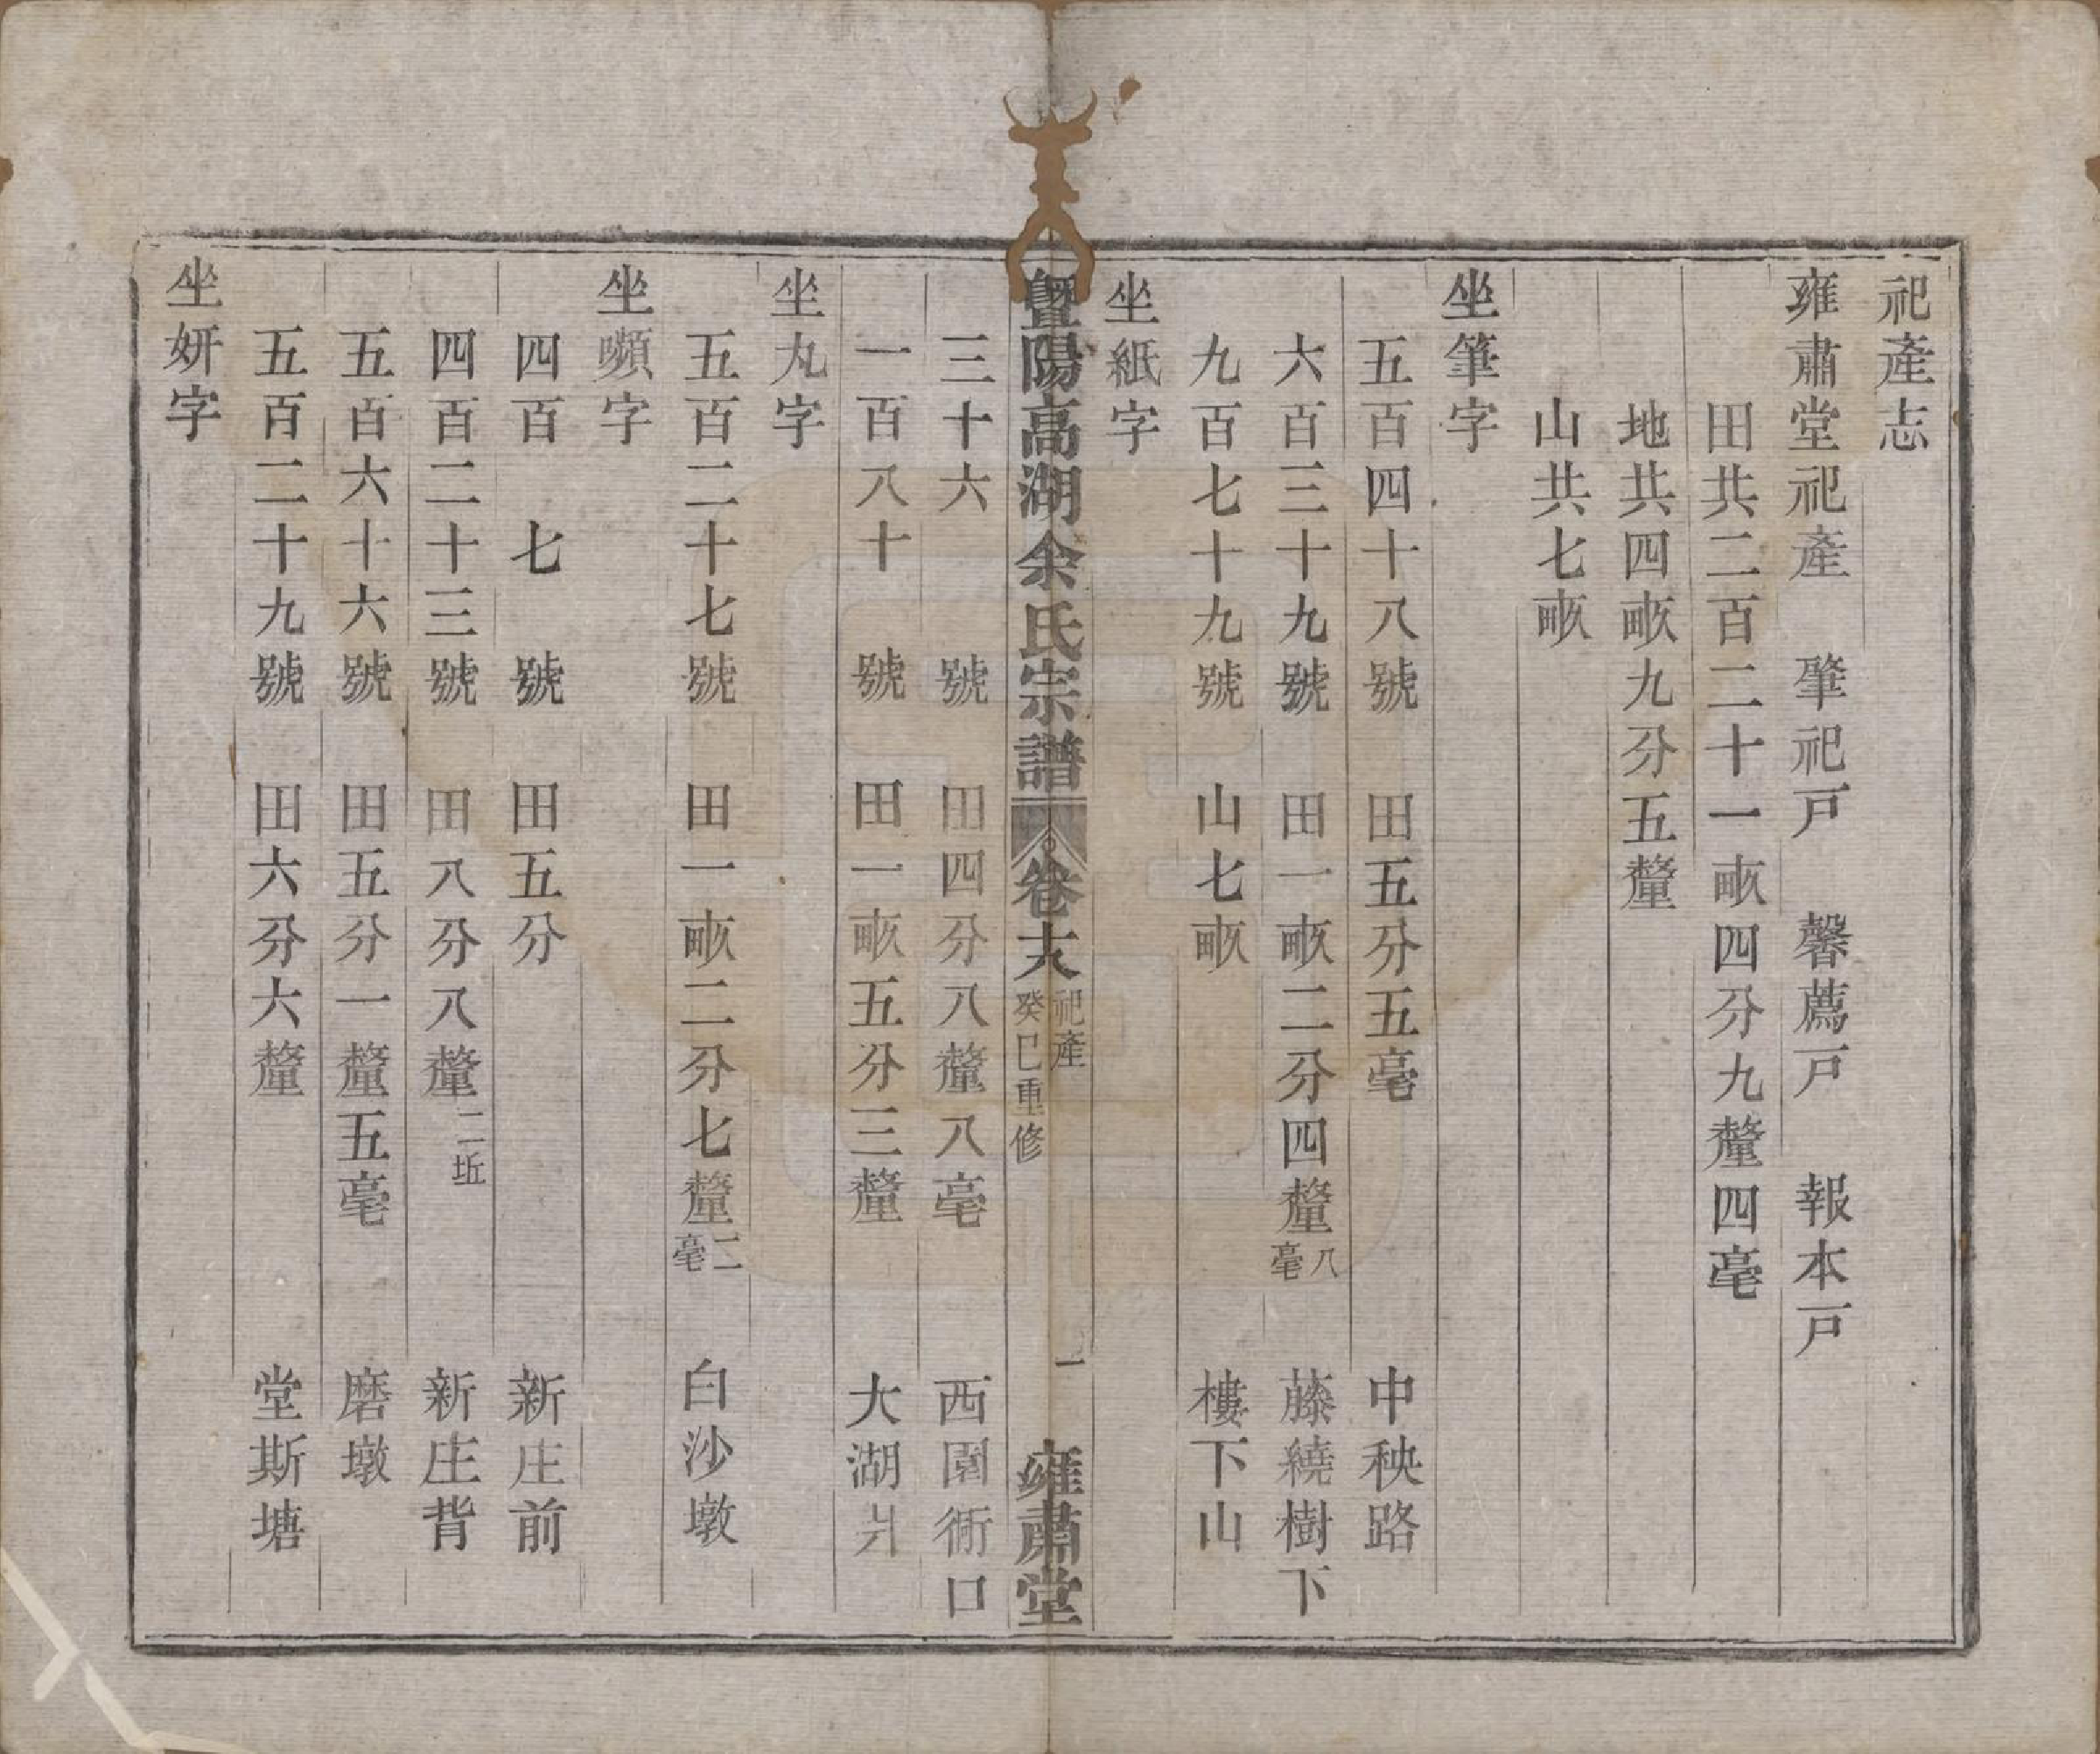 祀產志
雍肅堂祀產　肇祀戸　馨薦戸　報本戸
田共二百二十一畞四分九釐四毫
地共四畞九分五釐
山共七畞
坐筆字
五百四十八號　田五分五毫　中秧路
六百三十九號　田一畞二分四釐八毫　藤繞樹下
九百七十九號　山七畞　樓下山
坐紙字
暨陽高湖余氏宗譜　卷大　祀產　癸巳重修　一　雍肅堂
三十六　號　田四分八釐八毫　西園衕口
一百八十　號　田一畞五分三釐　大湖爿
坐丸字
五百二十七號　田一畞二分七釐二毫　白沙墩
坐嚬字
四百　七　號　田五分　新庄前
四百二十三號　田八分八釐二坵　新庄背
五百六十六號　田五分一釐五毫　磨墩
五百二十九號　田六分六釐　堂斯塘
坐妍字